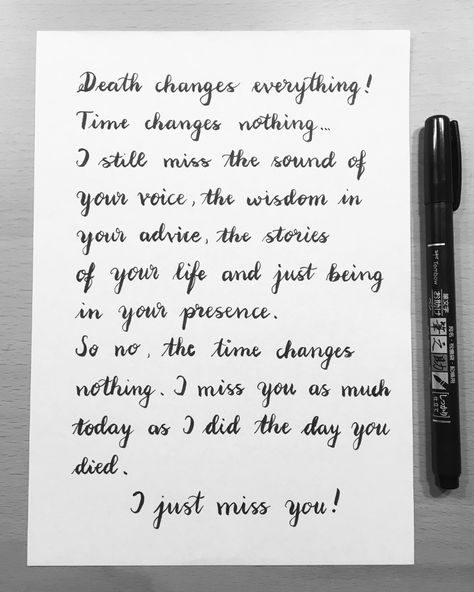 Death changes everything!
Time changes nothing...
I still miss the sound of
your voice, the wisdom in
your advice, the stories
of your life and just being
in your presence.
So no, the time changes
nothing. I miss you as much
today as I did the day you
died.
I just miss you!
Tombow
筆之助
しっかり